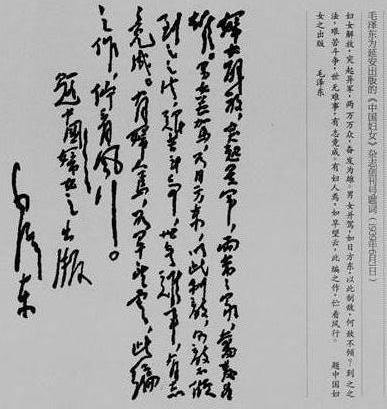 毛泽东为延安出版的《中国妇女》杂志创刊号题词(1939年6月1日)
妇女解放,突起异军,两万万众,奋发为雄。男女并驾,如日方东,以此制敌,何敌不倾?到之之
法,艰苦斗争,世无难事,有志竟成。有妇人焉,如旱望云,此编之作,伫看风行。 题中国妇
女之出版 毛泽东
妇女解放,突起异军,两万万众,奋发为
雄。男女并驾,如日方东,以此制敌,何敌不倾。
到之之法,艰苦斗争,世无难事,有志
竟成。有妇人焉,如旱望云,此编
之作,伫看风行。
题中国妇女之出版
毛泽东